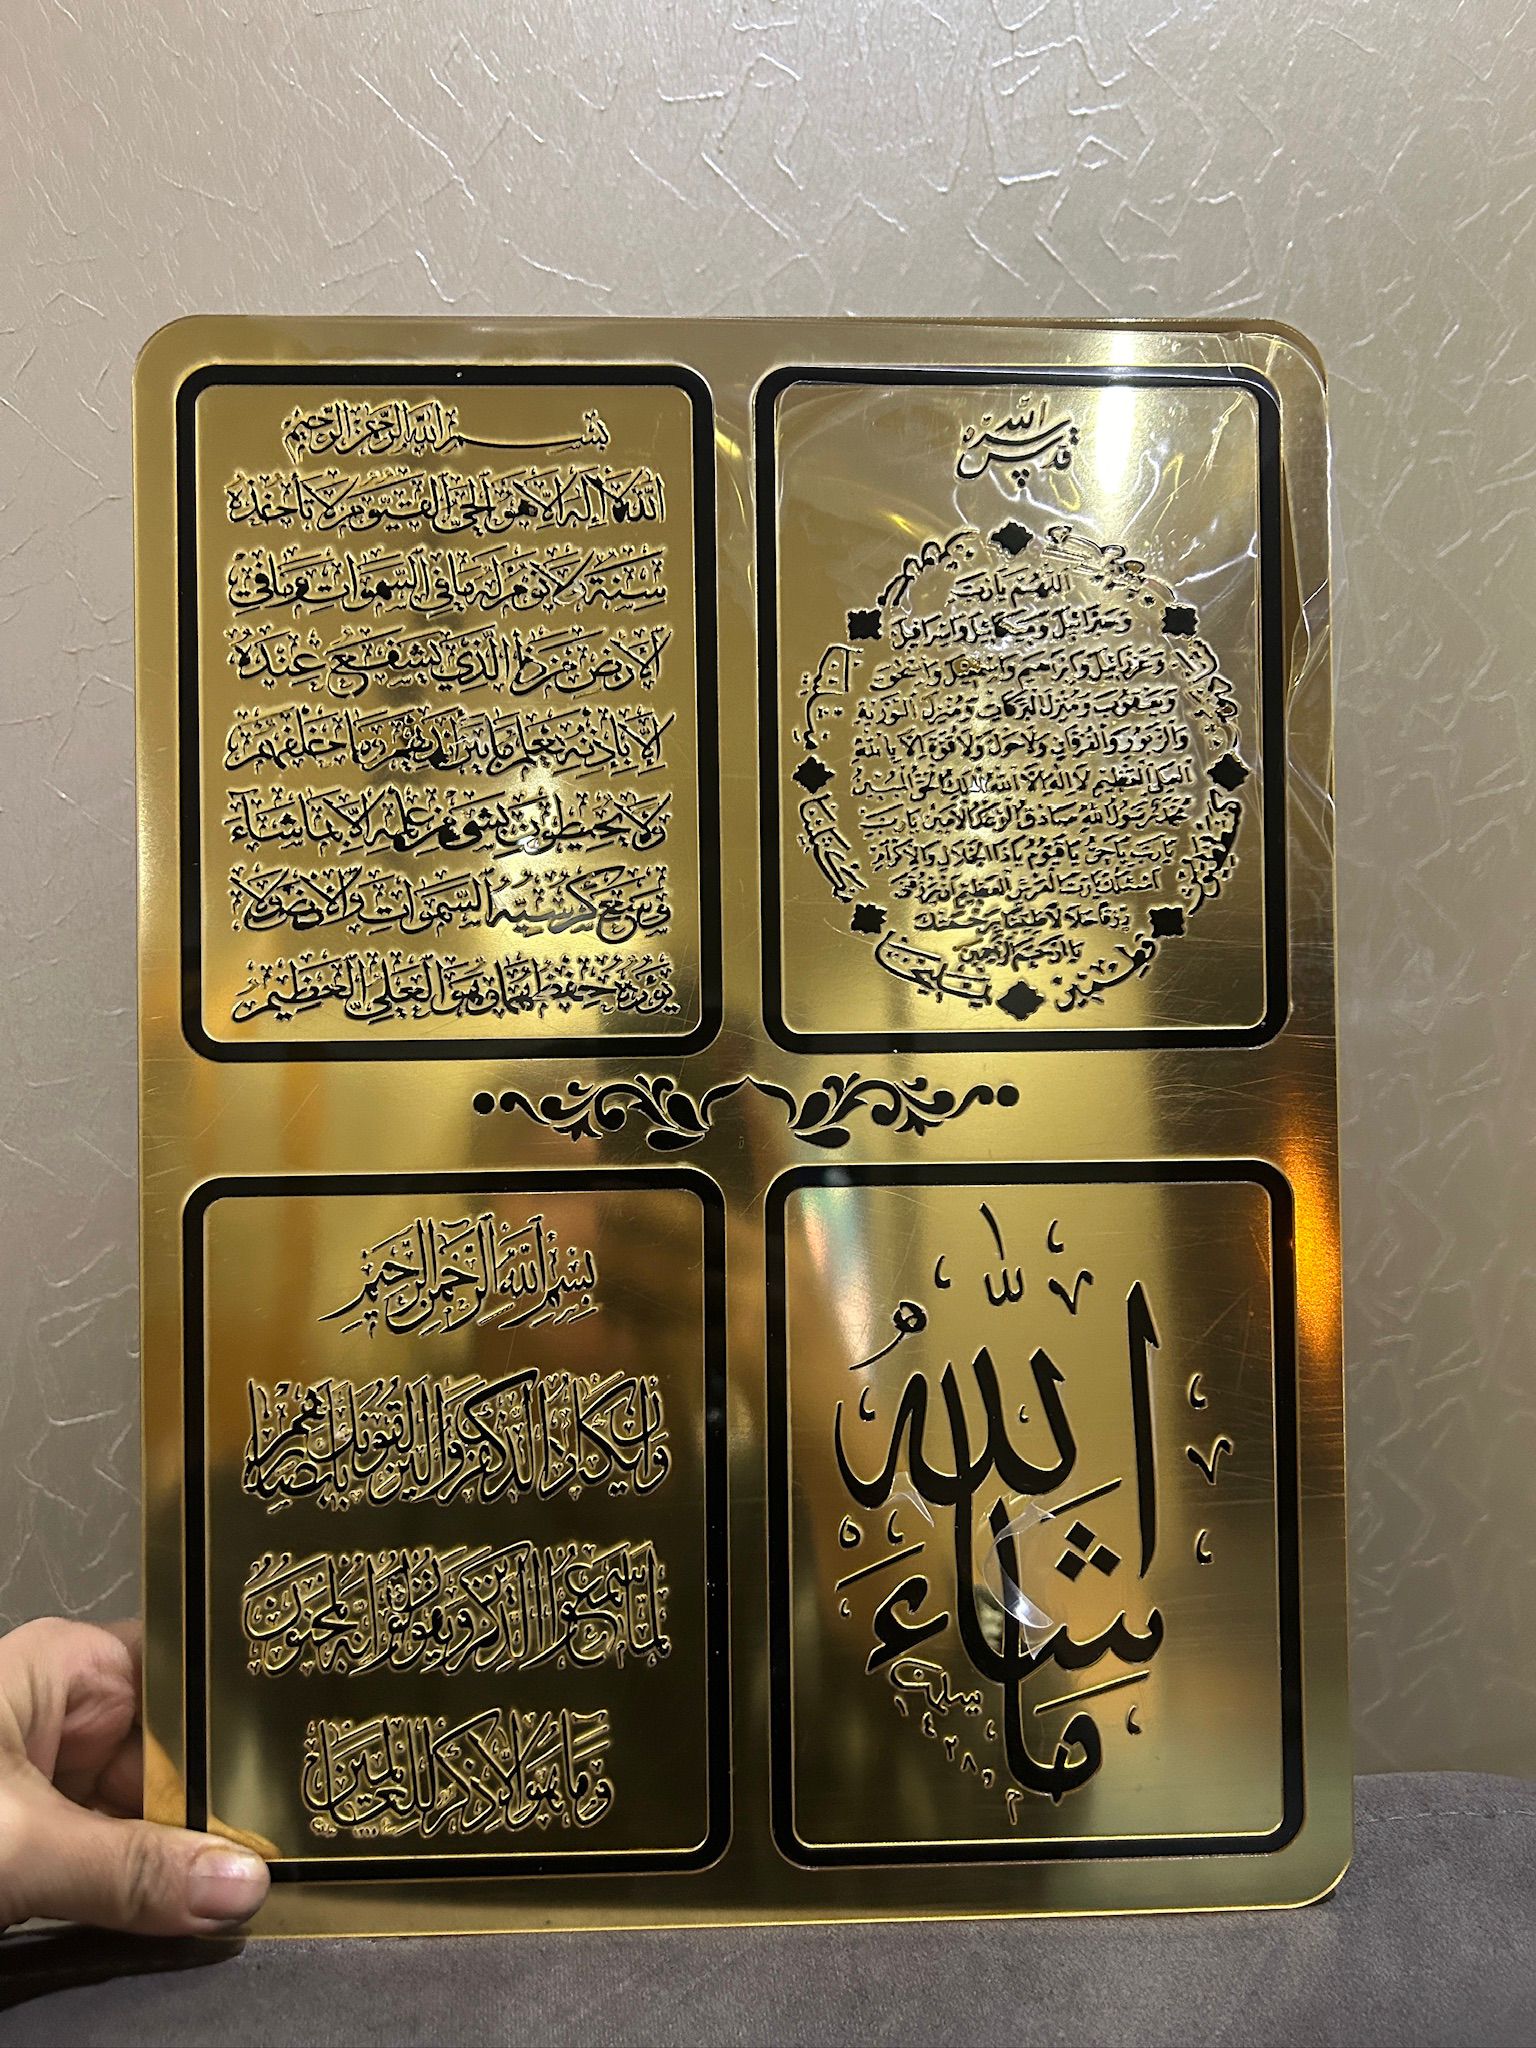 بسم الله الرحمن الرحيم
الله لا إله إلا هو الحي القيوم لا تأخذه
سنة ولا نوم له ما في السموات وما في
الأرض من ذا الذي يشفع عنده
إلا بإذنه يعلم ما بين أيديهم وما خلفهم
ولا يحيطون بشيء من علمه إلا بما شاء
وسع كرسيه السموات والأرض ولا
يؤده حفظهما وهو العلي العظيم
الله
قدس سره
اللهم يا رب
وجبرائيل وميكائيل واسرافيل
وعزرائيل وابراهيم واسمعيل واسحق
ويعقوب ومنزل البركات ومنزل التورية
والزبور والفرقان ولا حول ولا قوة الا بالله
العلي العظيم لا اله الا الله الملك الحق المبين
محمد رسول الله صادق الوعد الامين يا رب
يا رب يا حي يا قيوم يا ذا الجلال والاكرام
اسئلك يا رب العرش العظيم ان ترزقني
رزقا حلالا طيبا برحمتك
يا ارحم الراحمين
يمليخا
مكسلينا
كفشططيوش
قطمير
بسم الله الرحمن الرحيم
وإن يكاد الذين كفروا ليزلقونك بأبصارهم
لما سمعوا الذكر ويقولون إنه لمجنون
وما هو إلا ذكر للعالمين
ما شاء الله